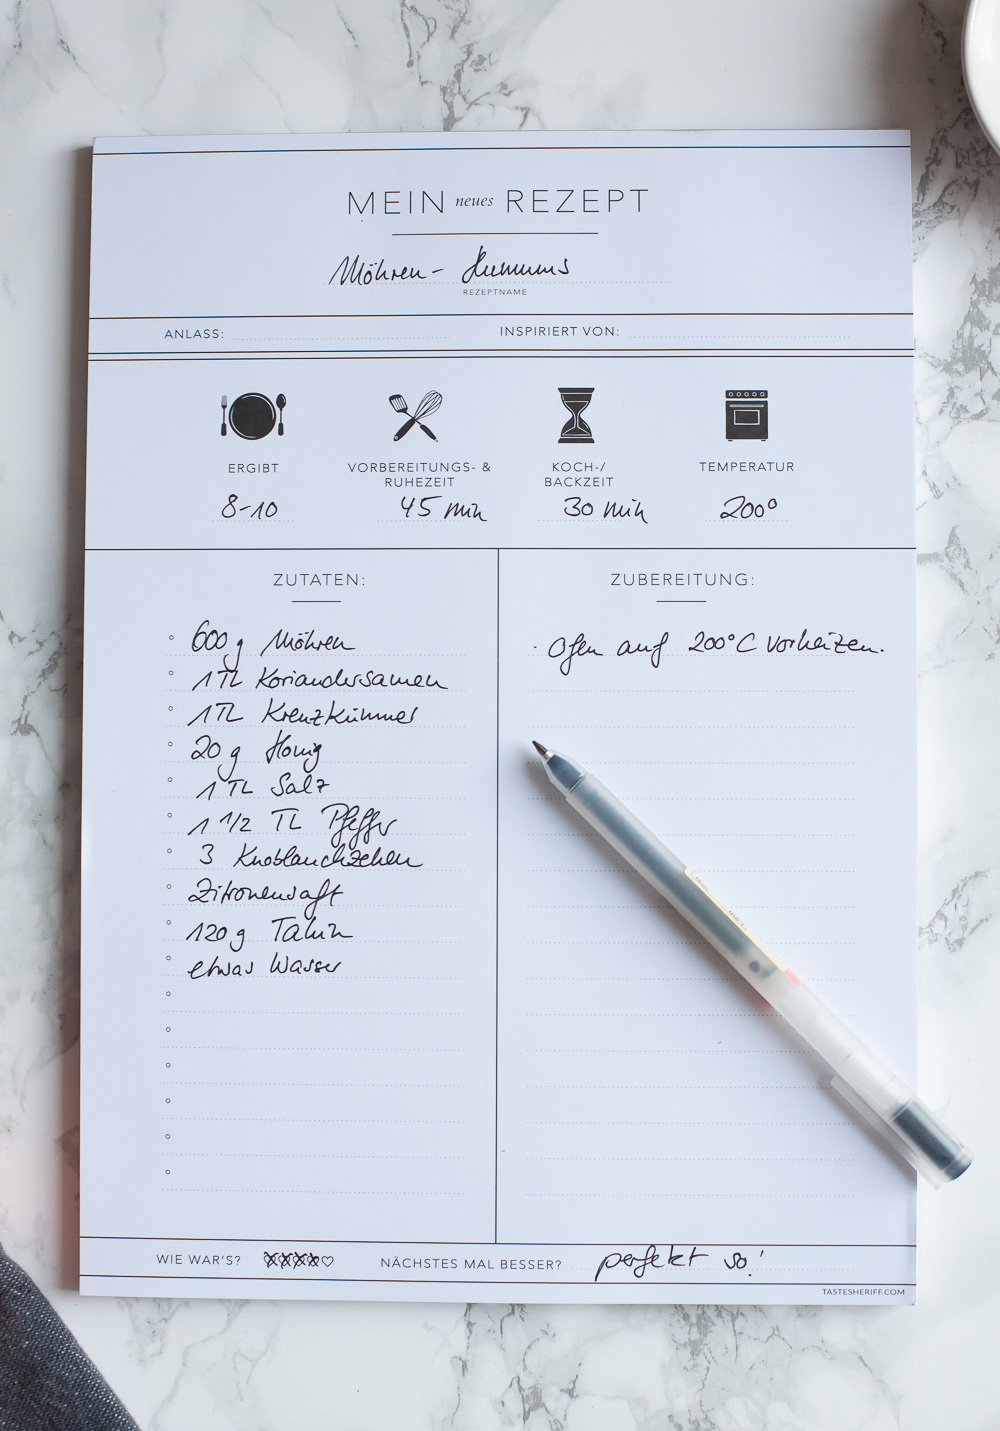 MEIN neues REZEPT
Möhren- Hummus
REZEPTNAME
ANLASS: INSPIRIERT VON:
ERGIBT
8-10
VORBEREITUNGS- &
RUHEZEIT
45 min
KOCH-/
BACKZEIT
30 min
TEMPERATUR
200°
ZUTATEN:
600 g Möhren
1 TL Koriandersamen
1 TL Kreuzkümmel
20 g Honig
1 TL Salz
1 1/2 TL Pfeffer
3 Knoblauchzehen
Zitronensaft
120 g Tahin
etwas Wasser
ZUBEREITUNG:
· Ofen auf 200°C vorheizen.
WIE WAR'S? NÄCHSTES MAL BESSER? perfekt so!
TASTESHERIFF.COM